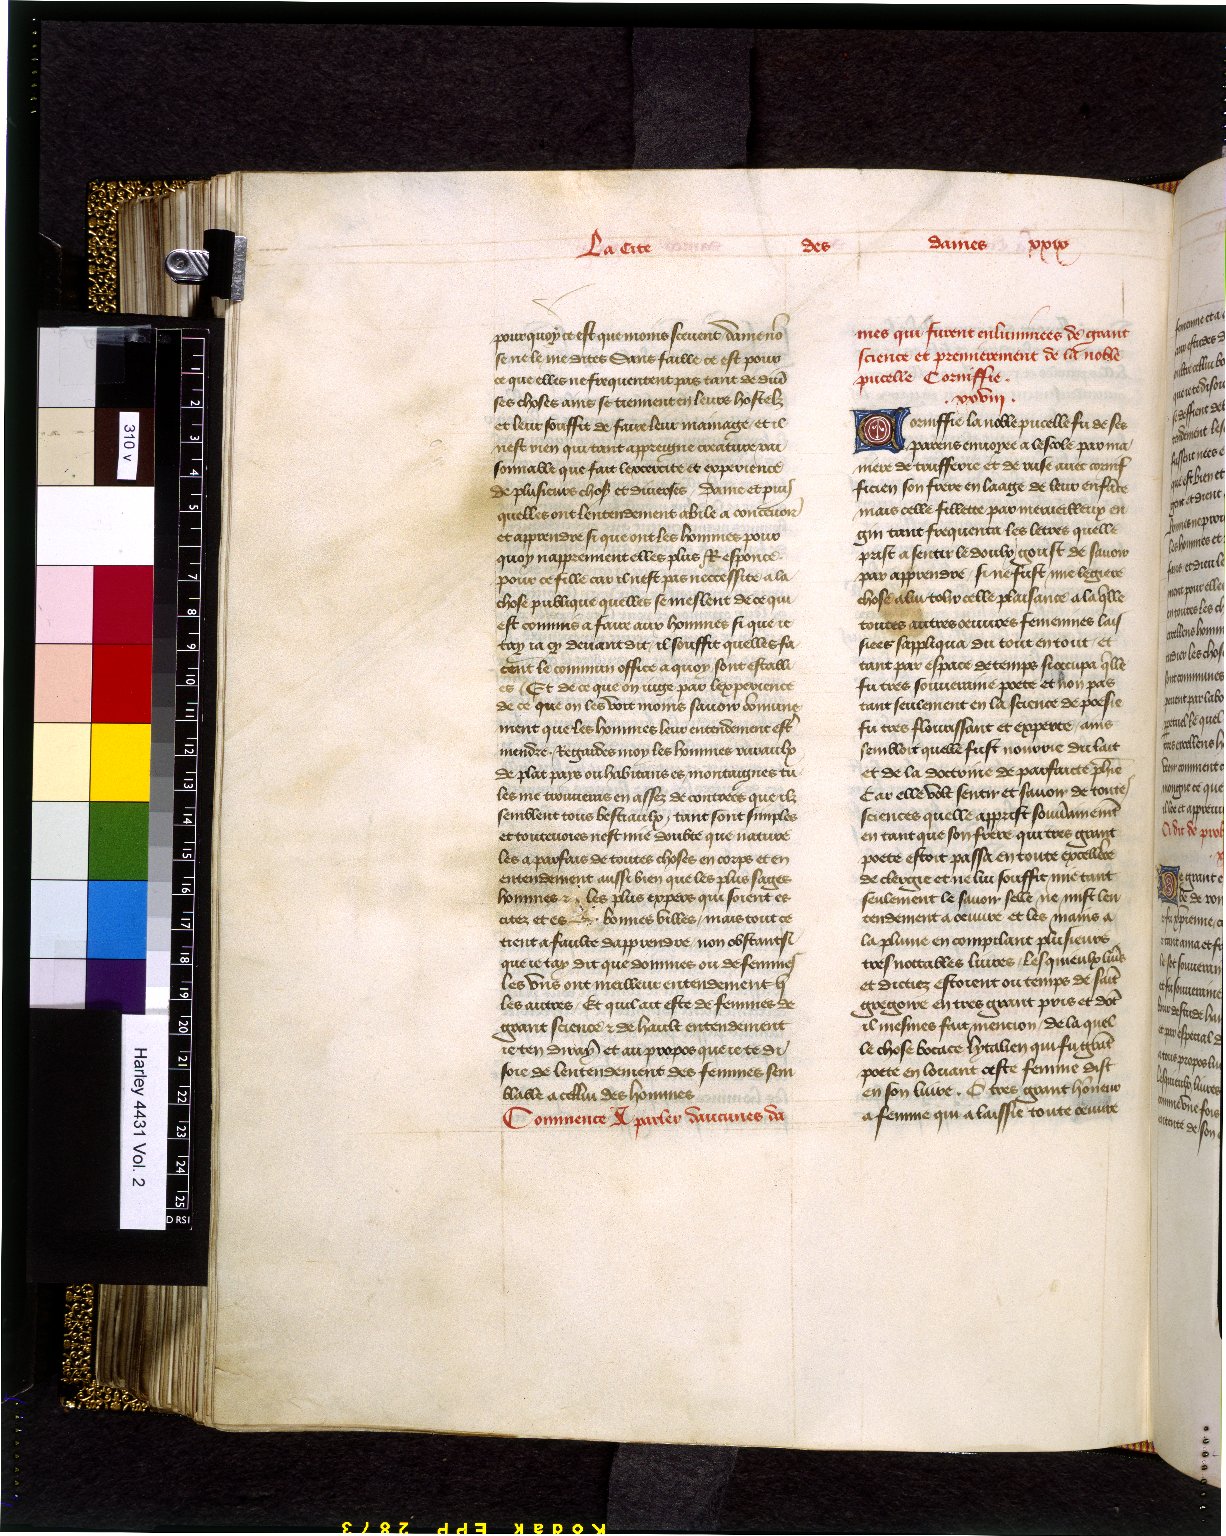 La Cite des dames xxix
pour quoy ce est que moins sceuent dame no
se ne le me dites Sans faille ce est pour
ce que elles ne frequentent pas tant de diuer
ses choses ains se tiennent en leurs hostelz
et leur souffit de faire leur mainage et il
nest rien qui tant appreigne creature rai
sonnable que fait lexcercite et experience
de plusieurs choses et diuerses / Dame et puis
quelles ont lentendement abile a conceuoir
et apprendre si que ont les hommes pour
quoy napprennent elles plus / Response
pour ce fille car il nest pas neccessite a la
chose publique quelles se meslent de ce qui
est commis a faire aux hommes si que ie
tay ia cy deuant dit / il souffit quelles fa
cent le commun office a quoy sont establi
es / Et de ce que on iuge par lexperience
de ce que on les voit moins sauoir commune
ment que les hommes leur entendement est
mendre . Regardes moy les hommes ruraulx
de plat pays ou habitans es montaignes tu
les me trouueras en assez de contrees que ilz
semblent tous bestiaulx / tant sont simples
et toutteuoies nest mie doubte que nature
les a parfais de toutes choses en corps et en
entendement aussi bien que les plus sages
hommes et les plus expers qui soient es
citez et es bonnes villes / mais tout ce
tient a faulte dapprendre / non obstant si
que ie tay dit que dommes ou de femmes
les vns ont meilleur entendement que
les autres / Et quil ait este de femmes de
grant science et de hault entendement
ie ten diray et au propos que ie te di
soie de lentendement des femmes sem
blable a cellui des hommes
Commence A parler daucunes da
mes qui furent enluminees de grant
science et premierement de la noble
pucelle Corniffie .
. xxviii .
Corniffie la noble pucelle fu de ses
parens enuoyee a lescole par ma
niere de trufferie et de ruse auec cornif
ficien son frere en laage de leur enfance
mais celle fillette par merueilleux en
gin tant frequenta les letres quelle
prist a sentir le doulx goust de sauoir
par apprendre / si ne fust mie legiere
chose a lui tolir celle plaisance a la quelle
toutes autres oeuures femenines lais
siees sappliqua du tout en tout / et
tant par espace de temps si occupa quelle
fu tres souueraine poete et non pas
tant seulement en la science de poesie
fu tres flourissant et experte / ains
sembloit quelle fust nourrie du lait
et de la doctrine de parfaicte phie
Car elle volt sentir et sauoir de toutes
sciences quelle apprist souuerainement
en tant que son frere qui tres grant
poete estoit passa en toute excellence
de clergie et ne lui souffit mie tant
seulement le sauoir selle ne mist len
tendement a oeuure et les mains a
la plume en compilant plusieurs
tres nottables liures / les quieulx liures
et dictiez estoient ou temps de saint
gregoire en tres grant pris et dont
il mesmes fait mencion / de la quel
le chose bocace lytalien qui fu grant
poete en louant ceste femme dist
en son liure . O tres grant honneur
a femme qui a laissie toute oeuure
310 v
Harley 4431 Vol. 2
1 2 3 4 5 7 8 9 10 11 12 13 14 15 16 17 18 19 20 21 22 23 24 25
Kodak EPP 2873